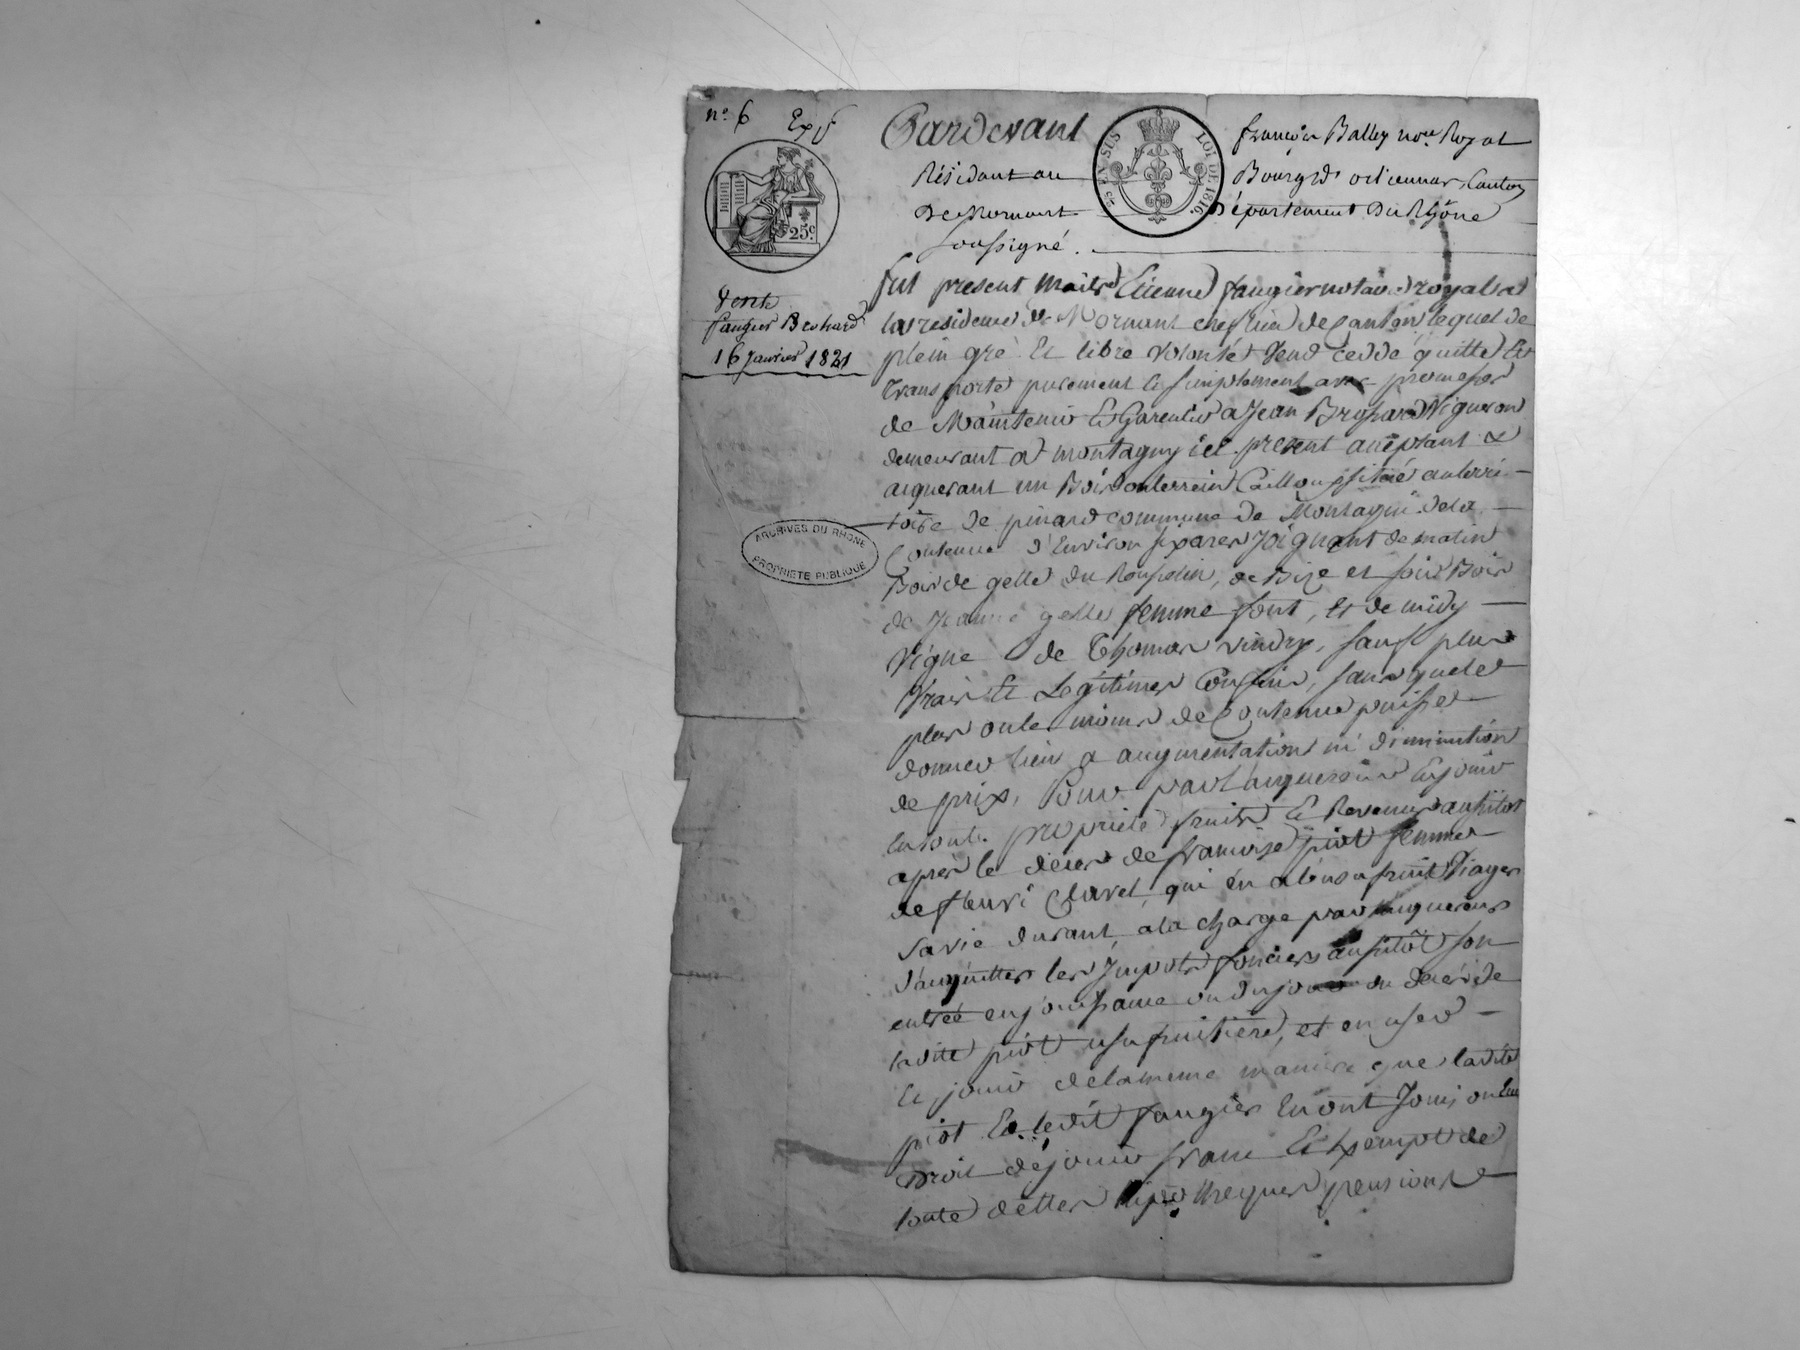 nº 6 Exp
Pardevant françois Balley nore Royal
25 EN SUS LOI DE 1816
Résidant au Bourg d'orliennas, Canton
De Mornant Département Du Rhône
soussigné.
25c
Vente
faugier Brohard
16 Janvier 1821
fut present Maitre Etienne faugier notaire royal a
la residence de Mornant chef lieu de Canton lequel de
plein gré Et libre volonté vend cedde quitte Et
transporte purement Et simplement avec promesse
de Maintenir Et Garentir a Jean Vigneron
demeurant a montagny ici present aceptant &
aquerant un Bois ou terrein Caillou situé au terri-
toire de pinard commune de Montagni de la
Contenue d'Environ six ares Joignant de matin
Bois de gelle du de Bize et soir Bois
de Jeanne gelle femme font, Et de midy
Vigne de Thomas vindry, sauf plus
Vrais Et Legitimes Confins, sans que le
plus ou le moins de Contenue puisse
donner lieu a augmentation ni diminution
de prix, Pour par l'aquereur En jouir
En toute propriété fruits Et Revenus aussitot
après le déces de françoise piot femme
de fleuri Clavel, qui en a l'usufruit Viager
sa vie durant, a la charge par l'aquereur
d'acquitter les Impots fonciers aussitôt son
entrée en jouissance ou du jour du déces de
ladite piot usufruitiere, et en user
Et jouir de la meme maniere que ladite
piot Et ledit faugier En ont Joui, ou Eu
Droit de jouir franc Et Exempt de
toute dettes hipotheques pensions
ARCHIVES DU RHÔNE
PROPRIÉTÉ PUBLIQUE